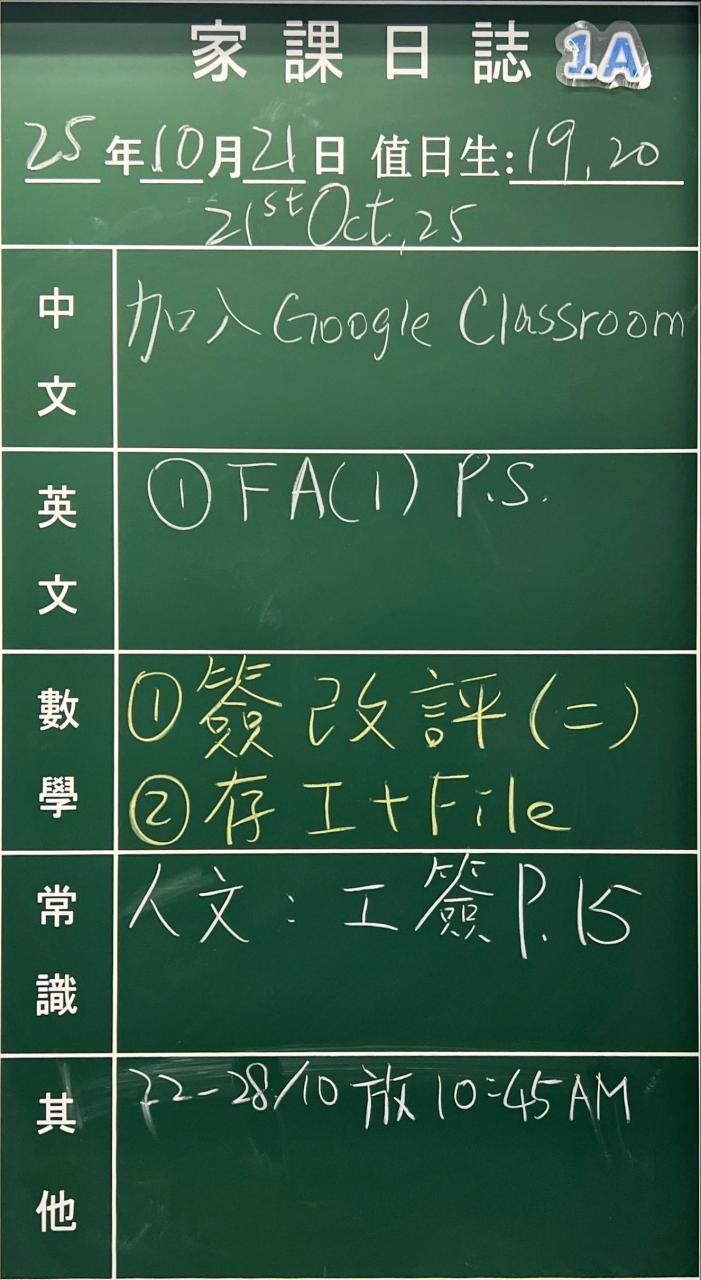 家課日誌 1A
25年10月21日 值日生:19,20
21st Oct, 25
中文 加入 Google Classroom
英文 ①FA(1) P.S.
數學 ①簽改評(二)
②存工+File
常識 人文:工簽P.15
其他 22-28/10 放10:45AM